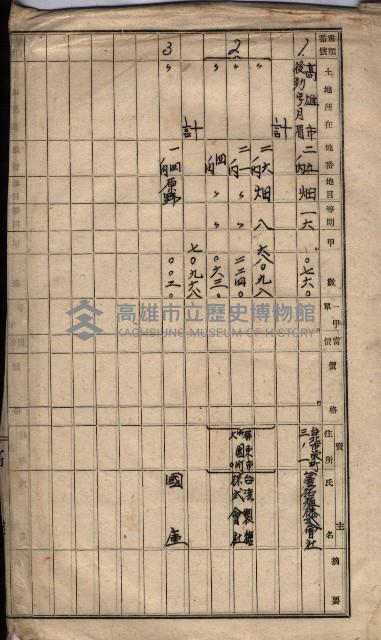 書類番號 土地所在 地番 地目 等則 甲數 一甲當單價 價格 賣主 住所 氏名 摘要
1. 高雄市後勁字月眉 二五ノ内 畑 一六 〇七六〇 台北市栄町三ノ一 株式會社
計
2. 〃 二六 畑 八 六八〇九八 屏東市 台湾製糖株式會社
二一ノ内 〃 〃 二二四〇
四ノ内 〃 〃 〇六三〇
計 七〇九六八
3 〃 一四ノ内 原野 〇〇二〇 國庫
高雄市立歷史博物館
KAOHSIUNG MUSEUM OF HISTORY